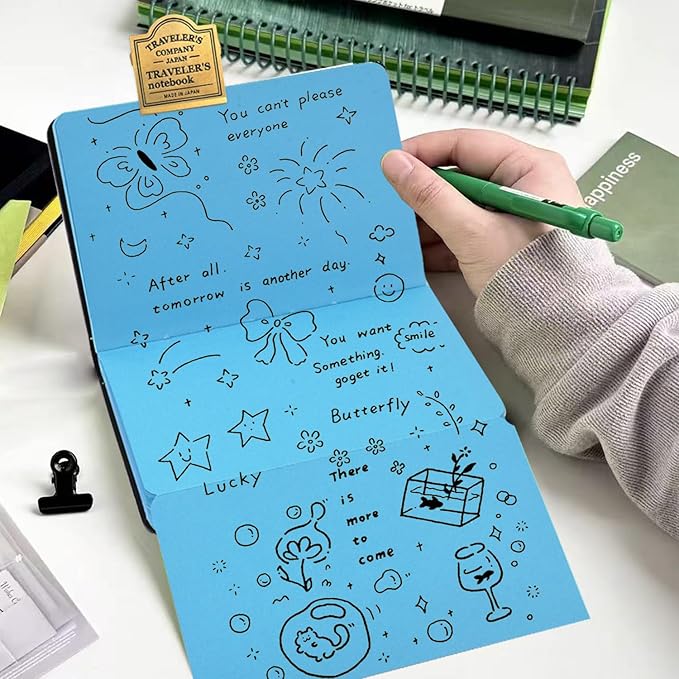 TRAVELER'S
COMPANY
JAPAN
TRAVELER'S
notebook
MADE IN JAPAN
You can't please
everyone
After all.
tomorrow is another day.
You want
Something.
goget it!
smile
Butterfly
Lucky
There
is
more
to
come
appiness